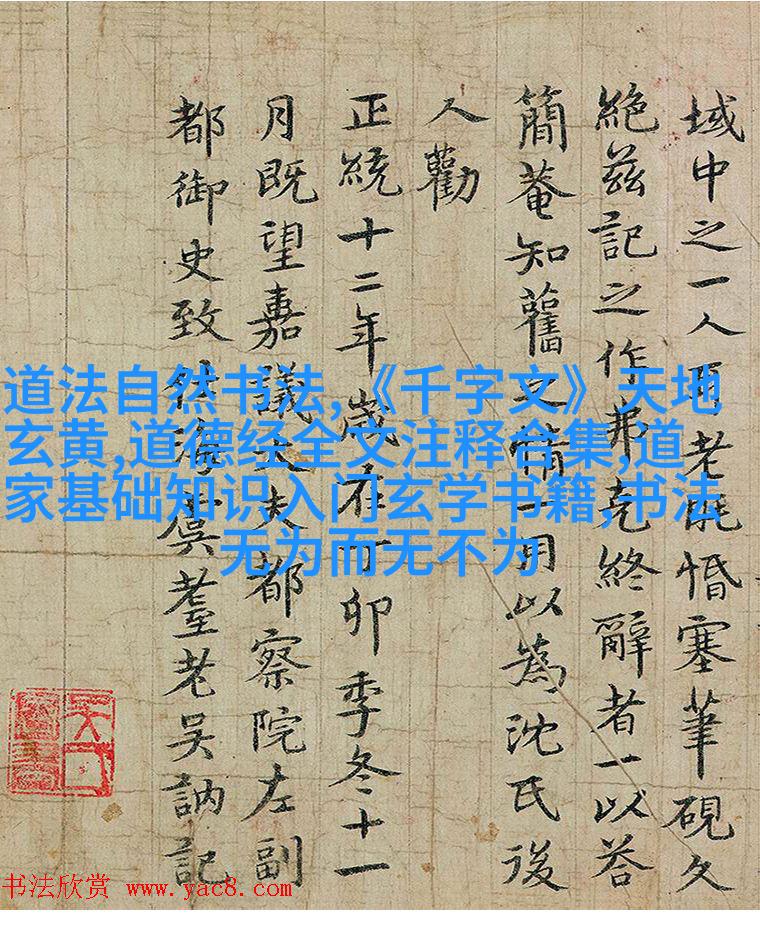 域中之一人耳老眊惛塞筆硯久
絶茲記之作弗克終辭者一以荅
簡菴知舊之情一用以為沈氏後
人勸
正統十二年歲在丁卯季冬十一
月既望嘉議大夫都察院左副
都御史致仕海虞耋老吳訥記
道法自然书法,《千字文》天地
玄黄,道德经全文注释合集,道
家基础知识入门玄学书籍,书法
无为而无不为
书法欣赏 www.yac8.com